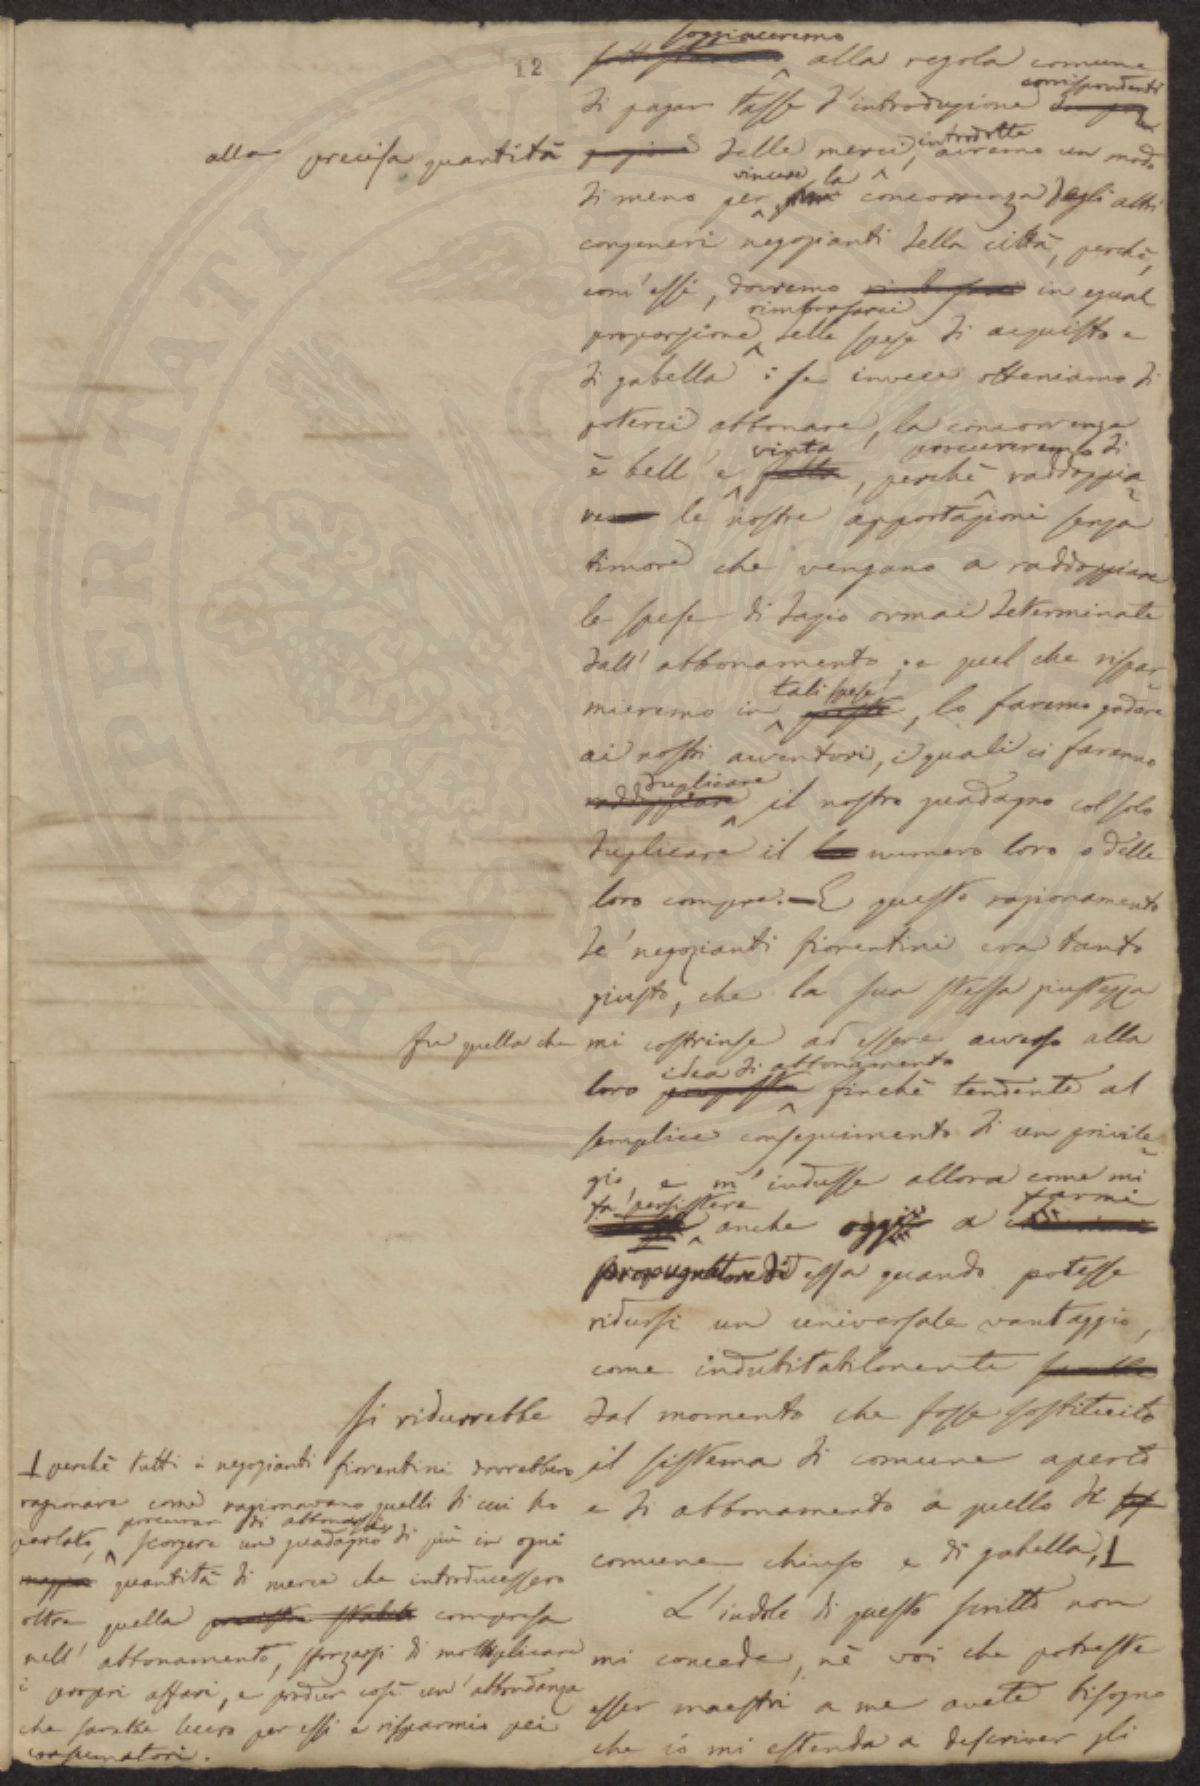 12
soggiaceremo
alla regola comune
corrispondenti
di pagar tasse d'introduzione
alla precisa quantità
delle merci introdotte, avremo un modo
vincere la
di meno per concorrenza degli altri
congeneri negozianti della città, perchè,
com'essi, dovremo in egual
rimborsarci
proporzione delle spese di acquisto e
di gabella: se invece otteniamo di
poterci abbonare, la concorrenza
vinta procureremo di
è bell'e fatta, perchè raddoppia
re le nostre apportazioni senza
timore che vengano a raddoppiare
le spese di dazio ormai determinate
dall'abbonamento; e quel che rispar
tali spese
mieremo in queste, lo faremo godere
ai nostri avventori, i quali ci faranno
duplicare
raddoppiare il nostro guadagno col solo
duplicare il numero loro o delle
loro compre. — E questo ragionamento
de' negozianti fiorentini era tanto
giusto, che la sua stessa giustezza
fu quella che mi costrinse ad essere avverso alla
idea di abbonamento
loro proposta finchè tendente al
semplice conseguimento di un privile
gio, e m'indusse allora come mi
fa persistere farmi
anche oggi a
propugnatore di essa quando potesse
ridursi un universale vantaggio,
come indubitabilmente
si ridurrebbe dal momento che fosse sostituito
il sistema di comune aperto
e di abbonamento a quello di
comune chiuso e di gabella, ⊥
L'indole di questo scritto non
mi concede, nè voi che potreste
esser maestri a me avete bisogno
che io mi estenda a descriver gli
⊥ perchè tutti i negozianti fiorentini dovrebbero
ragionare come ragionavano quelli di cui ho
procurar di abbonarsi,
parlato, scorgere un guadagno di più in ogni
quantità di merce che introducessero
oltre quella prevista stabilita compresa
nell'abbonamento, sforzarsi di moltiplicare
i propri affari, e produr così un'abbondanza
che sarebbe lucro per essi e risparmio pei
consumatori.